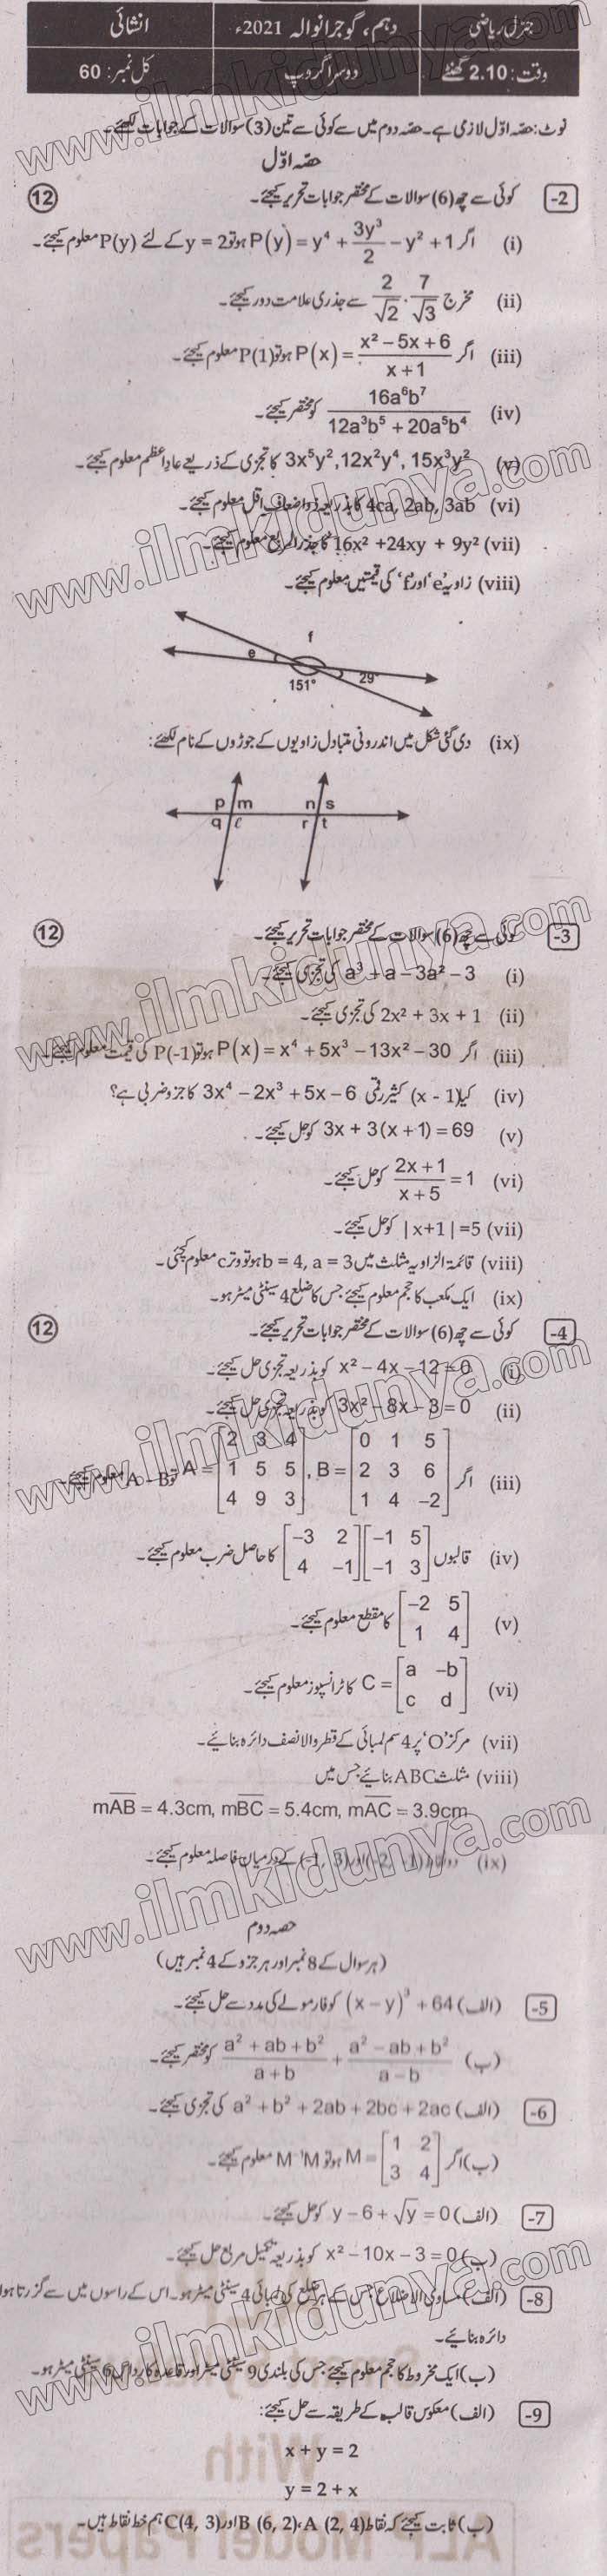 جنرل ریاضی دہم، گوجرانوالہ 2021ء انشائی
وقت: 2.10 گھنٹے دوسرا گروپ کل نمبر: 60
نوٹ: حصہ اوّل لازمی ہے۔ حصہ دوم میں سے کوئی سے تین (3) سوالات کے جوابات لکھئے۔
حصہ اوّل
2- کوئی سے چھ (6) سوالات کے مختصر جوابات تحریر کیجئے۔ (12)
(i) اگر P(y) = y⁴ + 3y³/2 − y² + 1 ہو تو y = 2 کے لئے P(y) معلوم کیجئے۔
(ii) مخرج 2/√2 · 7/√3 سے جذری علامت دور کیجئے۔
(iii) اگر P(x) = (x² − 5x + 6)/(x + 1) ہو تو P(1) معلوم کیجئے۔
(iv) 16a⁶b⁷/(12a³b⁵ + 20a⁵b⁴) کو مختصر کیجئے۔
(v) 3x⁵y², 12x²y⁴, 15x³y² کا تجزی کے ذریعے عاد اعظم معلوم کیجئے۔
(vi) 4ca, 2ab, 3ab کا بذریعہ ذواضعاف اقل معلوم کیجئے۔
(vii) 16x² + 24xy + 9y² کا جذر المربع معلوم کیجئے۔
(viii) زاویہ 'e' اور 'f' کی قیمتیں معلوم کیجئے۔
f
e
151° 29°
(ix) دی گئی شکل میں اندرونی متبادل زاویوں کے جوڑوں کے نام لکھئے:
p m n s
q ℓ r t
3- کوئی سے چھ (6) سوالات کے مختصر جوابات تحریر کیجئے۔ (12)
(i) a³ + a − 3a² − 3 کی تجزی کیجئے۔
(ii) 2x² + 3x + 1 کی تجزی کیجئے۔
(iii) اگر P(x) = x⁴ + 5x³ − 13x² − 30 ہو تو P(-1) کی قیمت معلوم کیجئے۔
(iv) کیا (x - 1) کثیر رقمی 3x⁴ − 2x³ + 5x − 6 کا جزو ضربی ہے؟
(v) 3x + 3(x + 1) = 69 کو حل کیجئے۔
(vi) (2x + 1)/(x + 5) = 1 کو حل کیجئے۔
(vii) |x+1| =5 کو حل کیجئے۔
(viii) قائمۃ الزاویہ مثلث میں b = 4, a = 3 ہو تو وتر c معلوم کیجئے۔
(ix) ایک مکعب کا حجم معلوم کیجئے جس کا ضلع 4 سینٹی میٹر ہو۔
4- کوئی سے چھ (6) سوالات کے مختصر جوابات تحریر کیجئے۔ (12)
(i) x² − 4x − 12 = 0 کو بذریعہ تجزی حل کیجئے۔
(ii) 3x² − 8x − 3 = 0 کو بذریعہ تجزی حل کیجئے۔
(iii) اگر A = [2 3 4; 1 5 5; 4 9 3], B = [0 1 5; 2 3 6; 1 4 −2] تو A − B معلوم کیجئے۔
(iv) قالبوں [−3 2; 4 −1][−1 5; −1 3] کا حاصل ضرب معلوم کیجئے۔
(v) [−2 5; 1 4] کا مقطع معلوم کیجئے۔
(vi) C = [a −b; c d] کا ٹرانسپوز معلوم کیجئے۔
(vii) مرکز 'O' پر 4 سم لمبائی کے قطر والا نصف دائرہ بنائیے۔
(viii) مثلث ABC بنائیے جس میں
mAB = 4.3cm, mBC = 5.4cm, mAC = 3.9cm
(ix) کے درمیان فاصلہ معلوم کیجئے۔
حصہ دوم
(ہر سوال کے 8 نمبر اور ہر جزو کے 4 نمبر ہیں)
5- (الف) (x − y)³ + 64 کو فارمولے کی مدد سے حل کیجئے۔
(ب) (a² + ab + b²)/(a + b) + (a² − ab + b²)/(a − b) کو مختصر کیجئے۔
6- (الف) a² + b² + 2ab + 2bc + 2ac کی تجزی کیجئے۔
(ب) اگر M = [1 2; 3 4] ہو تو M⁻¹M معلوم کیجئے۔
7- (الف) y − 6 + √y = 0 کو حل کیجئے۔
(ب) x² − 10x − 3 = 0 کو بذریعہ تکمیل مربع حل کیجئے۔
8- (الف) مساوی الاضلاع جس کے ہر ضلع کی لمبائی 4 سینٹی میٹر ہو۔ اس کے راسوں میں سے گزرتا ہوا
دائرہ بنائیے۔
(ب) ایک مخروط کا حجم معلوم کیجئے جس کی بلندی 9 سینٹی میٹر اور قاعدہ کا رداس 6 سینٹی میٹر ہو۔
9- (الف) معکوس قالب کے طریقہ سے حل کیجئے:
x + y = 2
y = 2 + x
(ب) ثابت کیجئے کہ نقاط A (2, 4)، B (6, 2) اور C(4, 3) ہم خط نقاط ہیں۔
www.ilmkidunya.com
www.ilmkidunya.com
www.ilmkidunya.com
www.ilmkidunya.com
www.ilmkidunya.com
www.ilmkidunya.com